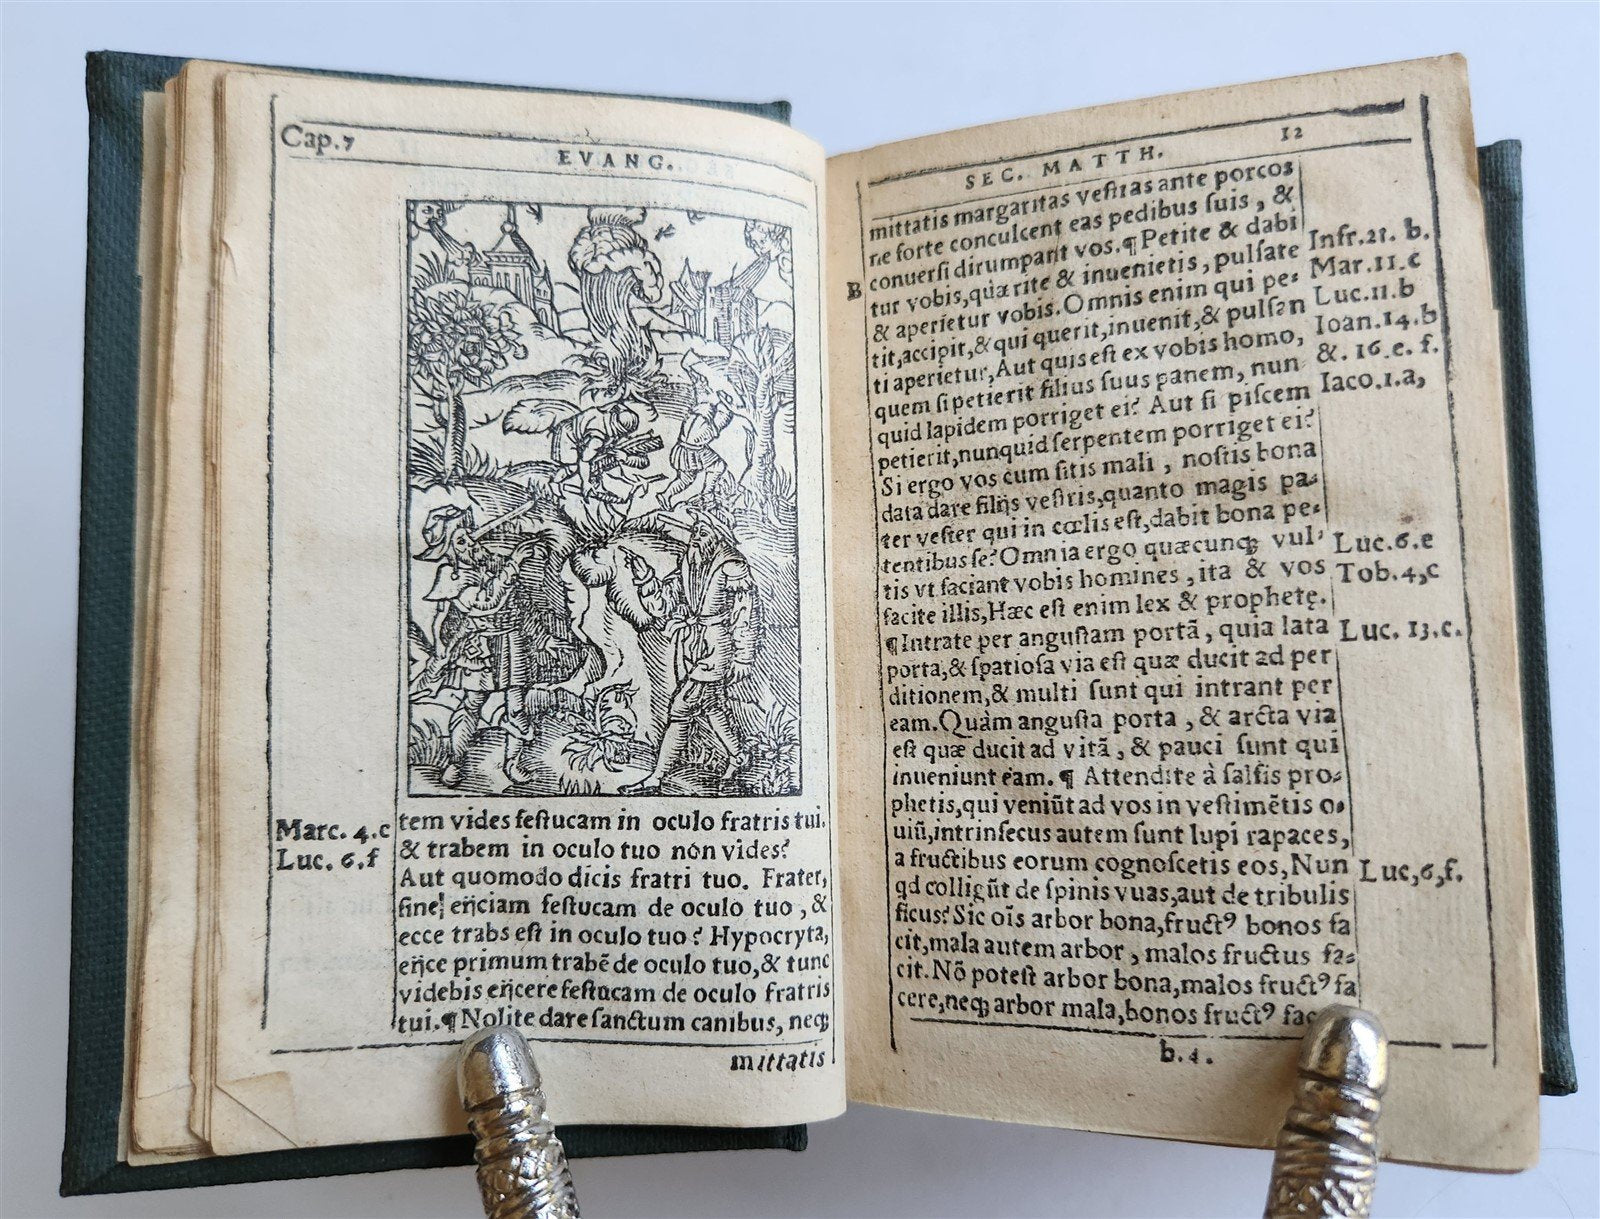 Cap.7
EVANG.
Marc. 4.c
Luc. 6.f
tem vides feſtucam in oculo fratris tui.
& trabem in oculo tuo non vides?
Aut quomodo dicis fratri tuo. Frater,
ſine, eijciam feſtucam de oculo tuo, &
ecce trabs eſt in oculo tuo? Hypocryta,
eijce primum trabē de oculo tuo, & tunc
videbis eijcere feſtucam de oculo fratris
tui. ¶ Nolite dare ſanctum canibus, neqꝫ
mittatis
SEC. MATTH.
12
mittatis margaritas veſtras ante porcos
ne forte conculcent eas pedibus ſuis, &
conuerſi dirumpant vos. ¶ Petite & dabi
B
tur vobis, quærite & inuenietis, pulſate
& aperietur vobis. Omnis enim qui pe-
tit, accipit, & qui querit, inuenit, & pulſan
ti aperietur, Aut quis eſt ex vobis homo,
quem ſi petierit filius ſuus panem, nun
quid lapidem porriget ei? Aut ſi piſcem
petierit, nunquid ſerpentem porriget ei?
Si ergo vos cum ſitis mali, noſtis bona
data dare filijs veſtris, quanto magis pa-
ter veſter qui in cœlis eſt, dabit bona pe-
tentibus ſe? Omnia ergo quæcunqꝫ vul-
tis vt faciant vobis homines, ita & vos
facite illis, Hæc eſt enim lex & prophetę.
¶ Intrate per anguſtam portā, quia lata
porta, & ſpatioſa via eſt quæ ducit ad per
ditionem, & multi ſunt qui intrant per
eam. Quàm anguſta porta, & arcta via
eſt quæ ducit ad vitā, & pauci ſunt qui
inueniunt eam. ¶ Attendite à falſis pro-
phetis, qui veniūt ad vos in veſtimētis o-
uiū, intrinſecus autem ſunt lupi rapaces,
a fructibus eorum cognoſcetis eos, Nun
qd colligūt de ſpinis vuas, aut de tribulis
ficus? Sic oīs arbor bona, fructꝰ bonos fa
cit, mala autem arbor, malos fructus fa-
cit. Nō poteſt arbor bona, malos fructꝰ fa
cere, neqꝫ arbor mala, bonos fructꝰ fac
b.4.
Infr.21. b.
Mar.11.c
Luc.11.b
Ioan.14.b
&. 16.e. f.
Iaco.1.a,
Luc.6.e
Tob.4,c
Luc. 13.c.
Luc,6,f.